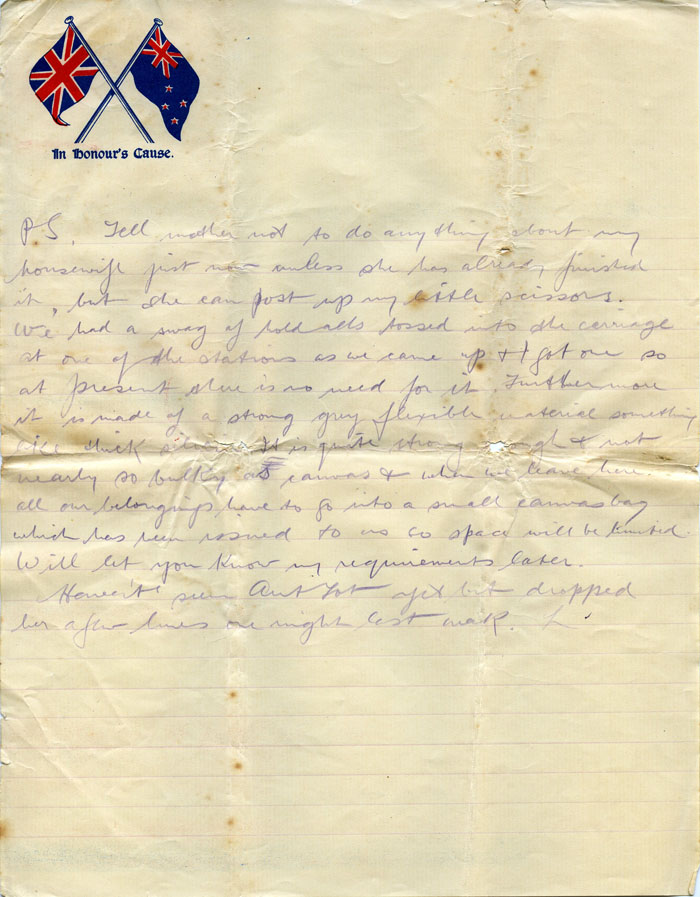 In Honour's Cause.
P S. Tell mother not to do anything about my
housewife just now unless she has already finished
it, but she can post up my little scissors.
We had a swag of hold alls tossed into the carriage
at one of the stations as we came up & I got one so
at present there is no need for it. Furthermore
it is made of a strong grey flexible material something
like duck It is quite strong enough & not
nearly so bulky as canvas & when we leave here
all our belongings have to go into a small canvas bag
which has been issued to us so space will be limited.
Will let you know my requirements later.
Haven't seen Aunt yet but dropped
her a few lines one night last week. L